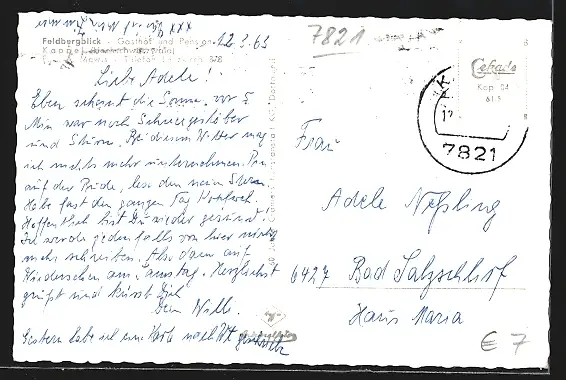 Feldbergblick - Gasthof und Pension
Kappel
12.3.63
7821
Liebe Adele!
Eben scheint die Sonne, vor 5
Min war noch Schneegestöber
und Sturm. Bei diesem Wetter mag
ich nichts mehr unternehmen. Bin
auf der Bude, lese den neuen Stern.
Habe fast den ganzen Tag Kopfweh.
Hoffentlich bist Du wieder gesund!
Ich werde jedenfalls von hier nichts
mehr schreiben. Also dann auf
Wiedersehen am Samstag. Herzlichst
grüßt und küsst Dich
Dein Willi.
Gestern habe ich eine Karte nach geschickt
Cekade
Kap
7821
Frau
Adele Nißling
6427 Bad Salzschlirf
Haus Maria
€ 7